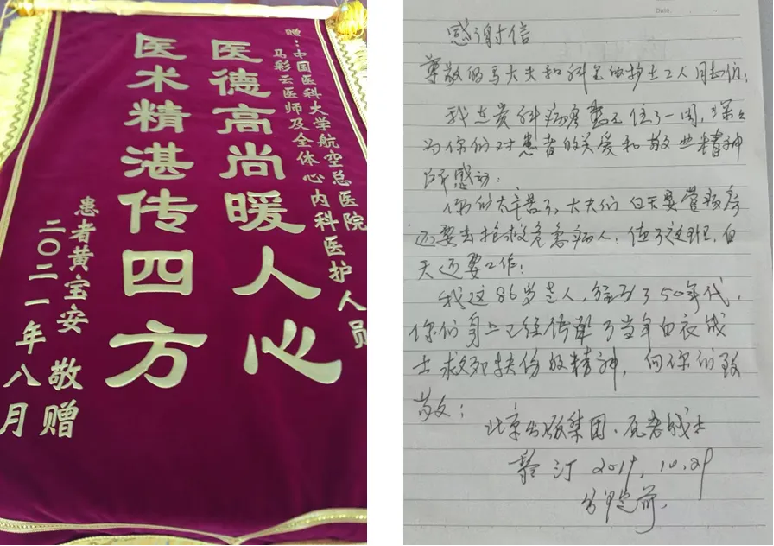 赠：中国医科大学航空总医院
马彩云医师及全体心内科医护人员
医德高尚暖人心
医术精湛传四方
患者黄宝安 敬赠
二〇二一年八月
Date.
感谢信
尊敬的马大夫和科里的护士工人同志们：
我在贵科病房 住了一周，深
为你们对患者的关爱和敬业精神
所感动。
你们太辛苦了，大夫们白天要管病房
还要去抢救危急病人，值了夜班，白
天还要工作；
我这86岁老人， 了50年代，
你们身上已经 了当年白衣战
士救死扶伤的精神，向你们致
敬；
北京出版集团、 战士
2019.10.29